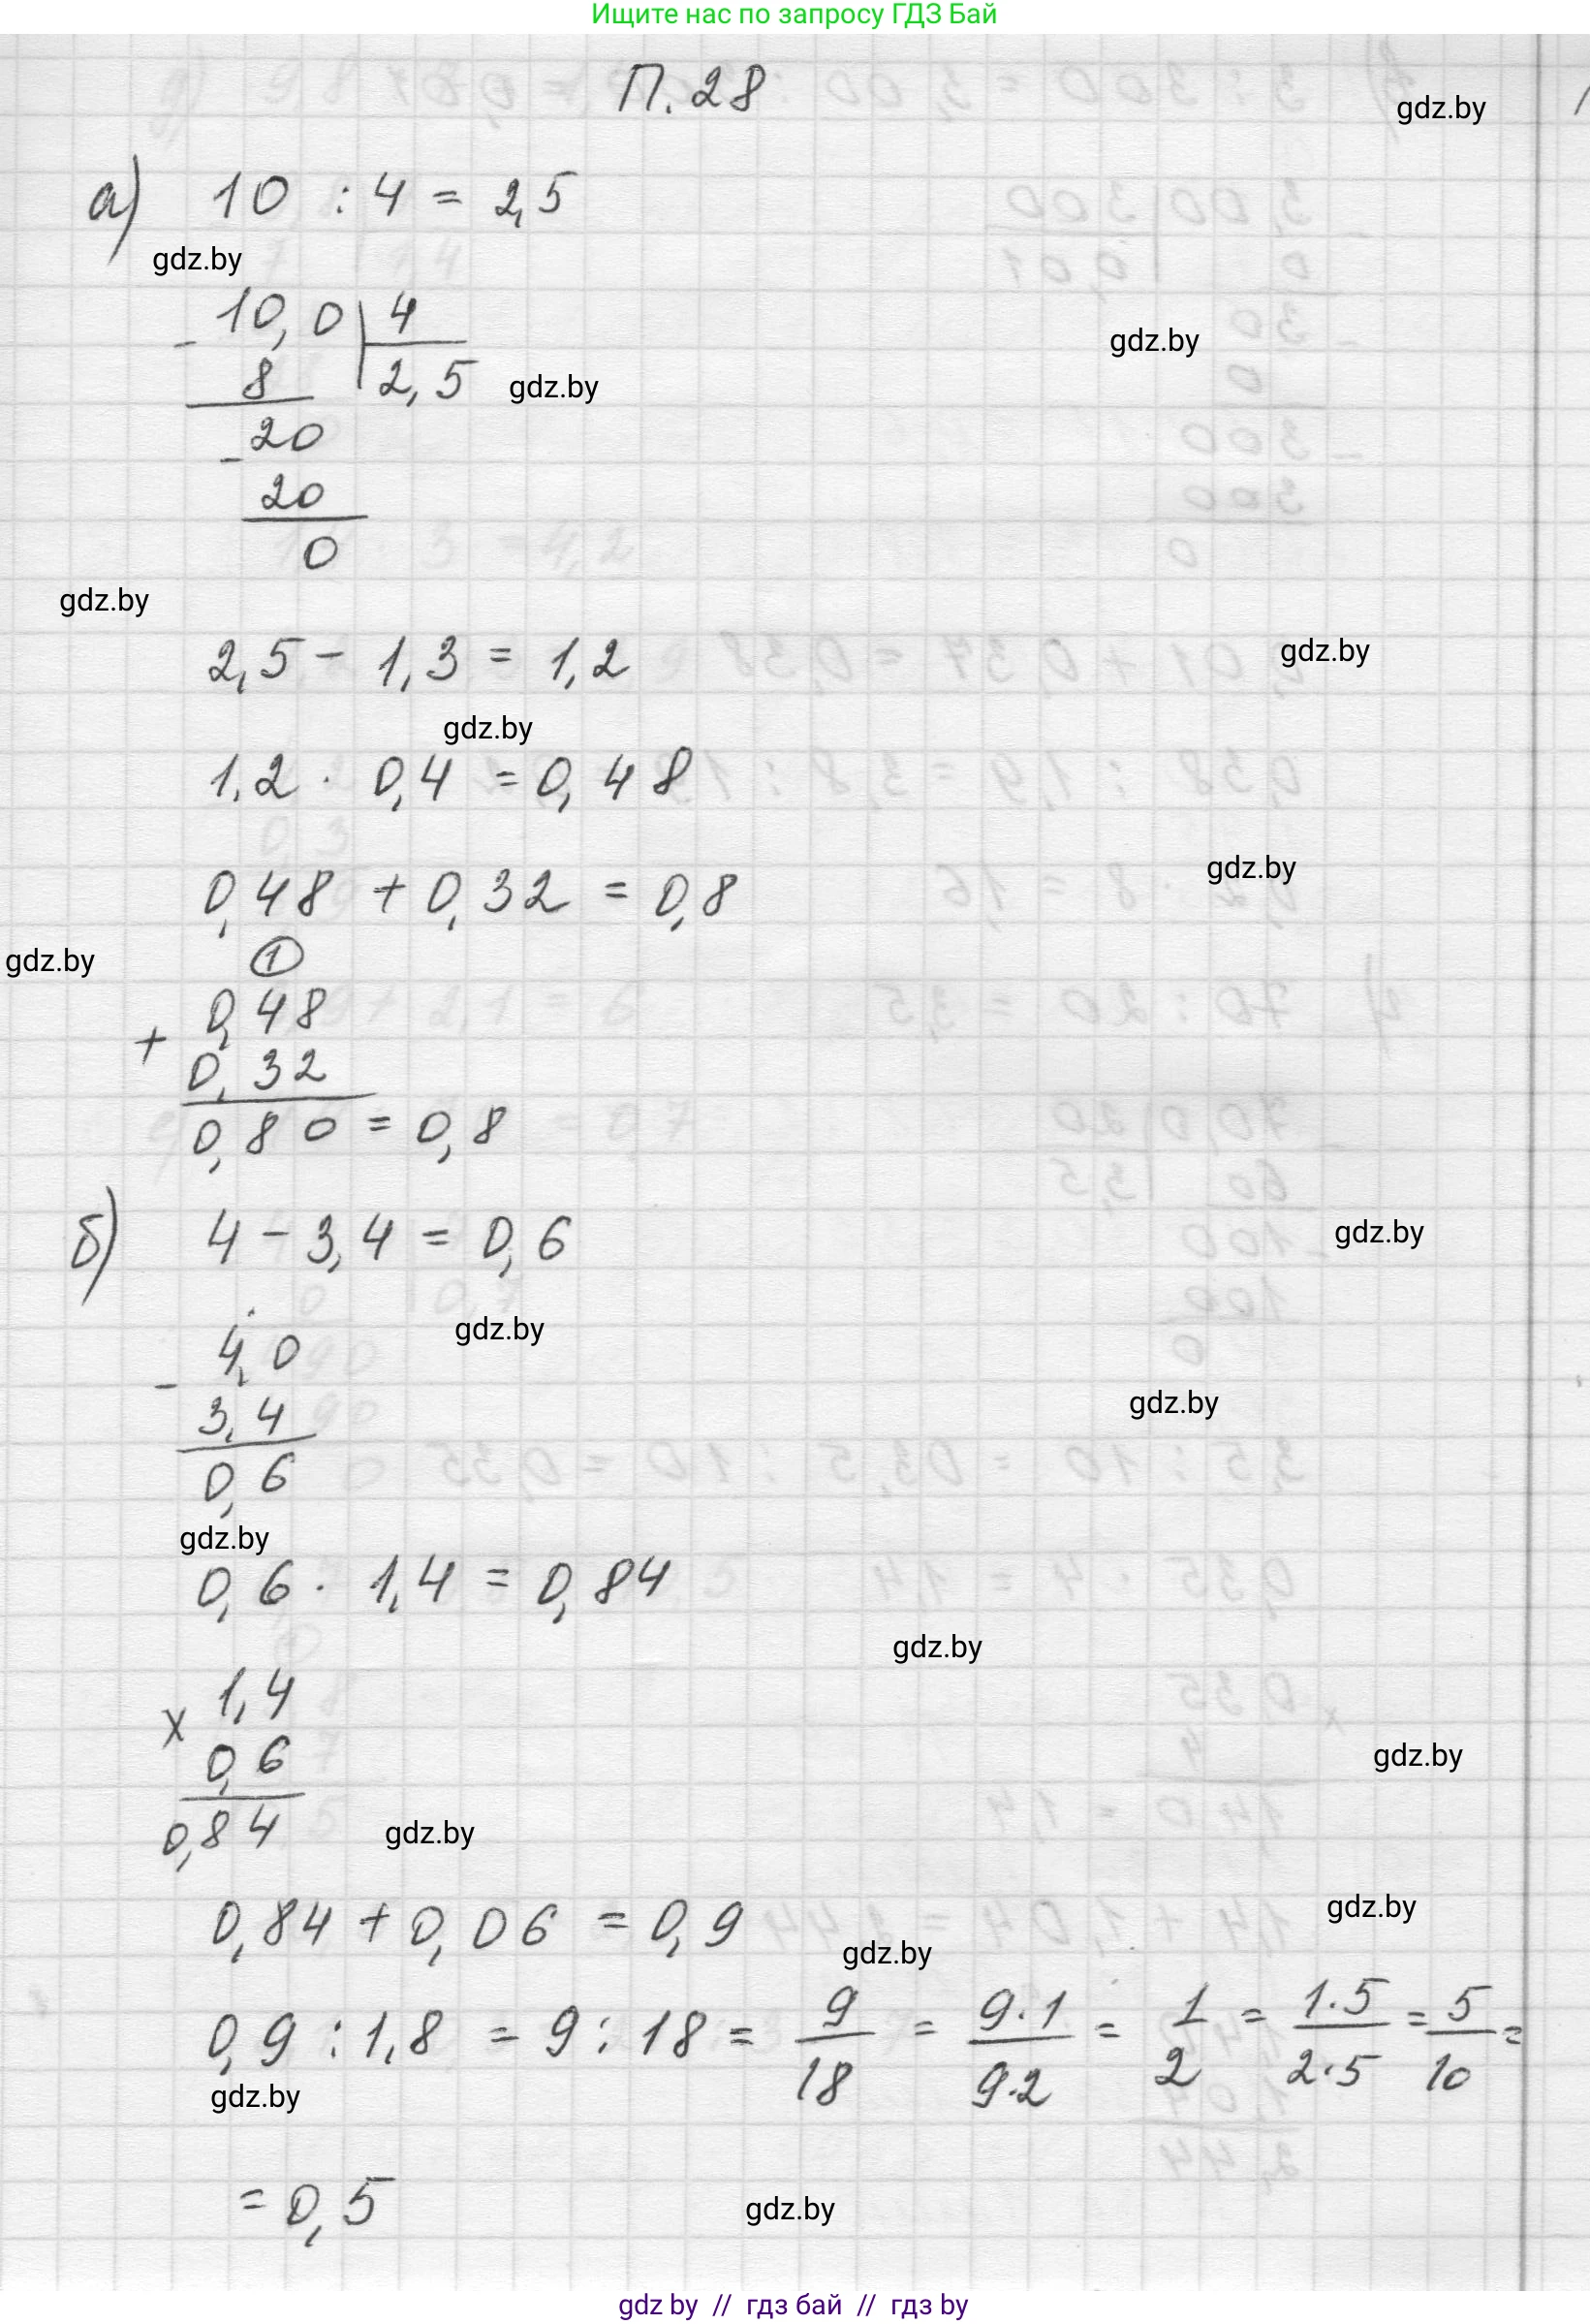 Ищите нас по запросу ГДЗ Бай
П.28
gdz.by
а) 10 : 4 = 2,5
gdz.by
- 10,0 | 4
gdz.by
8 | 2,5 gdz.by
- 20
20
0
gdz.by
2,5 - 1,3 = 1,2
gdz.by
gdz.by
1,2 · 0,4 = 0,48
gdz.by
0,48 + 0,32 = 0,8
gdz.by
1
+ 0,48
0,32
0,80 = 0,8
б) 4 - 3,4 = 0,6
gdz.by
gdz.by
- 4,0
3,4
gdz.by
0,6
gdz.by
0,6 · 1,4 = 0,84
gdz.by
x 1,4
0,6
gdz.by
0,84
gdz.by
0,84 + 0,06 = 0,9
gdz.by
gdz.by
0,9 : 1,8 = 9 : 18 = 9/18 = 9·1/9·2 = 1/2 = 1·5/2·5 = 5/10 =
gdz.by
= 0,5
gdz.by
gdz by // гдз бай // гдз by